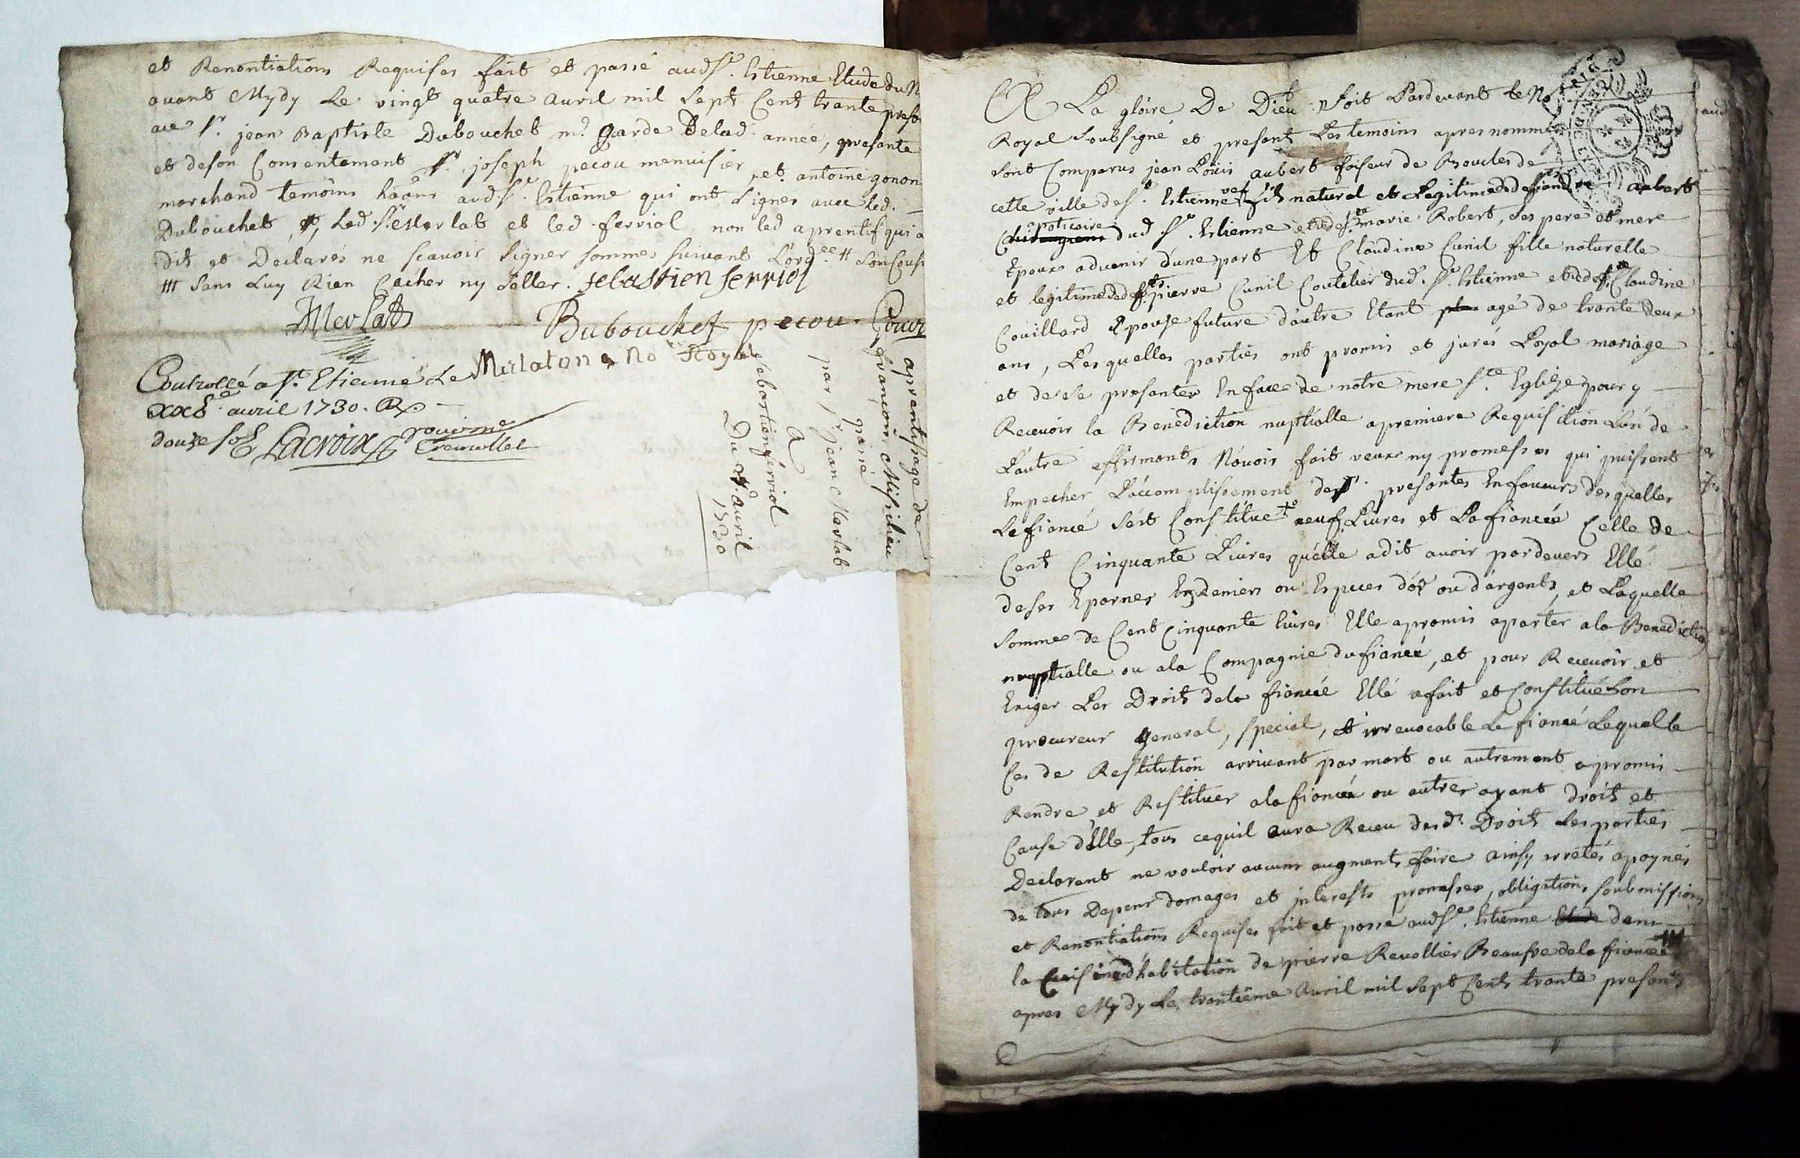 et Renontiations Requises fait et passé aud St. Estienne Etude du N
avant Mydy Le vingt quatre avril mil sept Cent trante presen
avec Sr. jean Baptiste Dubouchet md. garde delad. année, presente
et deson Consentement Sr. joseph pecou menuisier et antoine gonon
marchand temoins háans aud St. Estienne qui ont signés avec led.
Dubouchet, led. Sr. Merlat et led ferriol non led aprentif qui a
dit et Declares ne scavoir signer sommes suivant L'ordce. # son Cousi
### sans Luy Rien Cacher ny Celler. sebastien ferriol
JMerlatt
Dubouchet pecou
Murlaton No Royal
Controllé a St. Etienne Le
avril 1730. R
douze sols Lacroix
aprentissage de
françois Misilieu
passé
par sr. jean Merlat
A
sebastien feriol
Du avril
1730
A La gloire De Dieu soit Pardevant le No
Royal soubsigné et presant Les temoins apres nommes
sont Comparus jean Louis aubert foiseur de Boucles de
cette ville de St. Estienne fils naturel et Legitime de aubert
poticaire dud St. Estienne et de marie Robert, ses pere et mere
Epoux advenir dune part Et Claudine Cunil fille naturelle
et legitime de pierre Cunil Coutelier dud. St. Estienne et de Claudine
Couillard Epouze future d'autre Etant agé de trante deux
ans, Lesquelles parties ont promis et jurés Loyal mariage
et de se presenter Enface de notre mere Ste. Eglize pour y
Recevoir la Benediction nuptialle a premiere Requisition L'un de
L'autre affirmants N'avoir fait veux ny promesses qui puissent
Empecher L'accomplissement des presantes Enfaveurs desquelles
Le fiancé s'est Constitué neuf Livres et La fiancée Celle de
Cent Cinquante Livres quélle a dit avoir pardevers Elle
de ses Eparnes En deniers ou Especes d'or ou d'argents, et Laquelle
somme de Cent Cinquante livres Elle a promis aparter a la Benediction
nuptialle ou a la Compagnie du fiancé, et pour Recevoir et
Exiger Les Droits de la fiancée Elle a fait et Constitué son
procureur general, special, et irrevocable Le fiancé Lequel le
Cas de Restitution arrivant par mort ou autrement a promis
Rendre et Restituer a la fiancée ou autres ayant droit et
Cause d'Elle, tous cequil aura Receu desd. Droits Les parties
Declarant ne vouloir aucuns augments faire ainsy arretés a peynes
de tous Depens domages et interests promesses, obligations soubmissions
et Renontiations Requises fait et passé aud St. Estienne dans
la Cuisine d'habitation de pierre Revollier Beaufre de la fiancée ###
apres Mydy Le trantiême Avril mil sept Cents trante presents